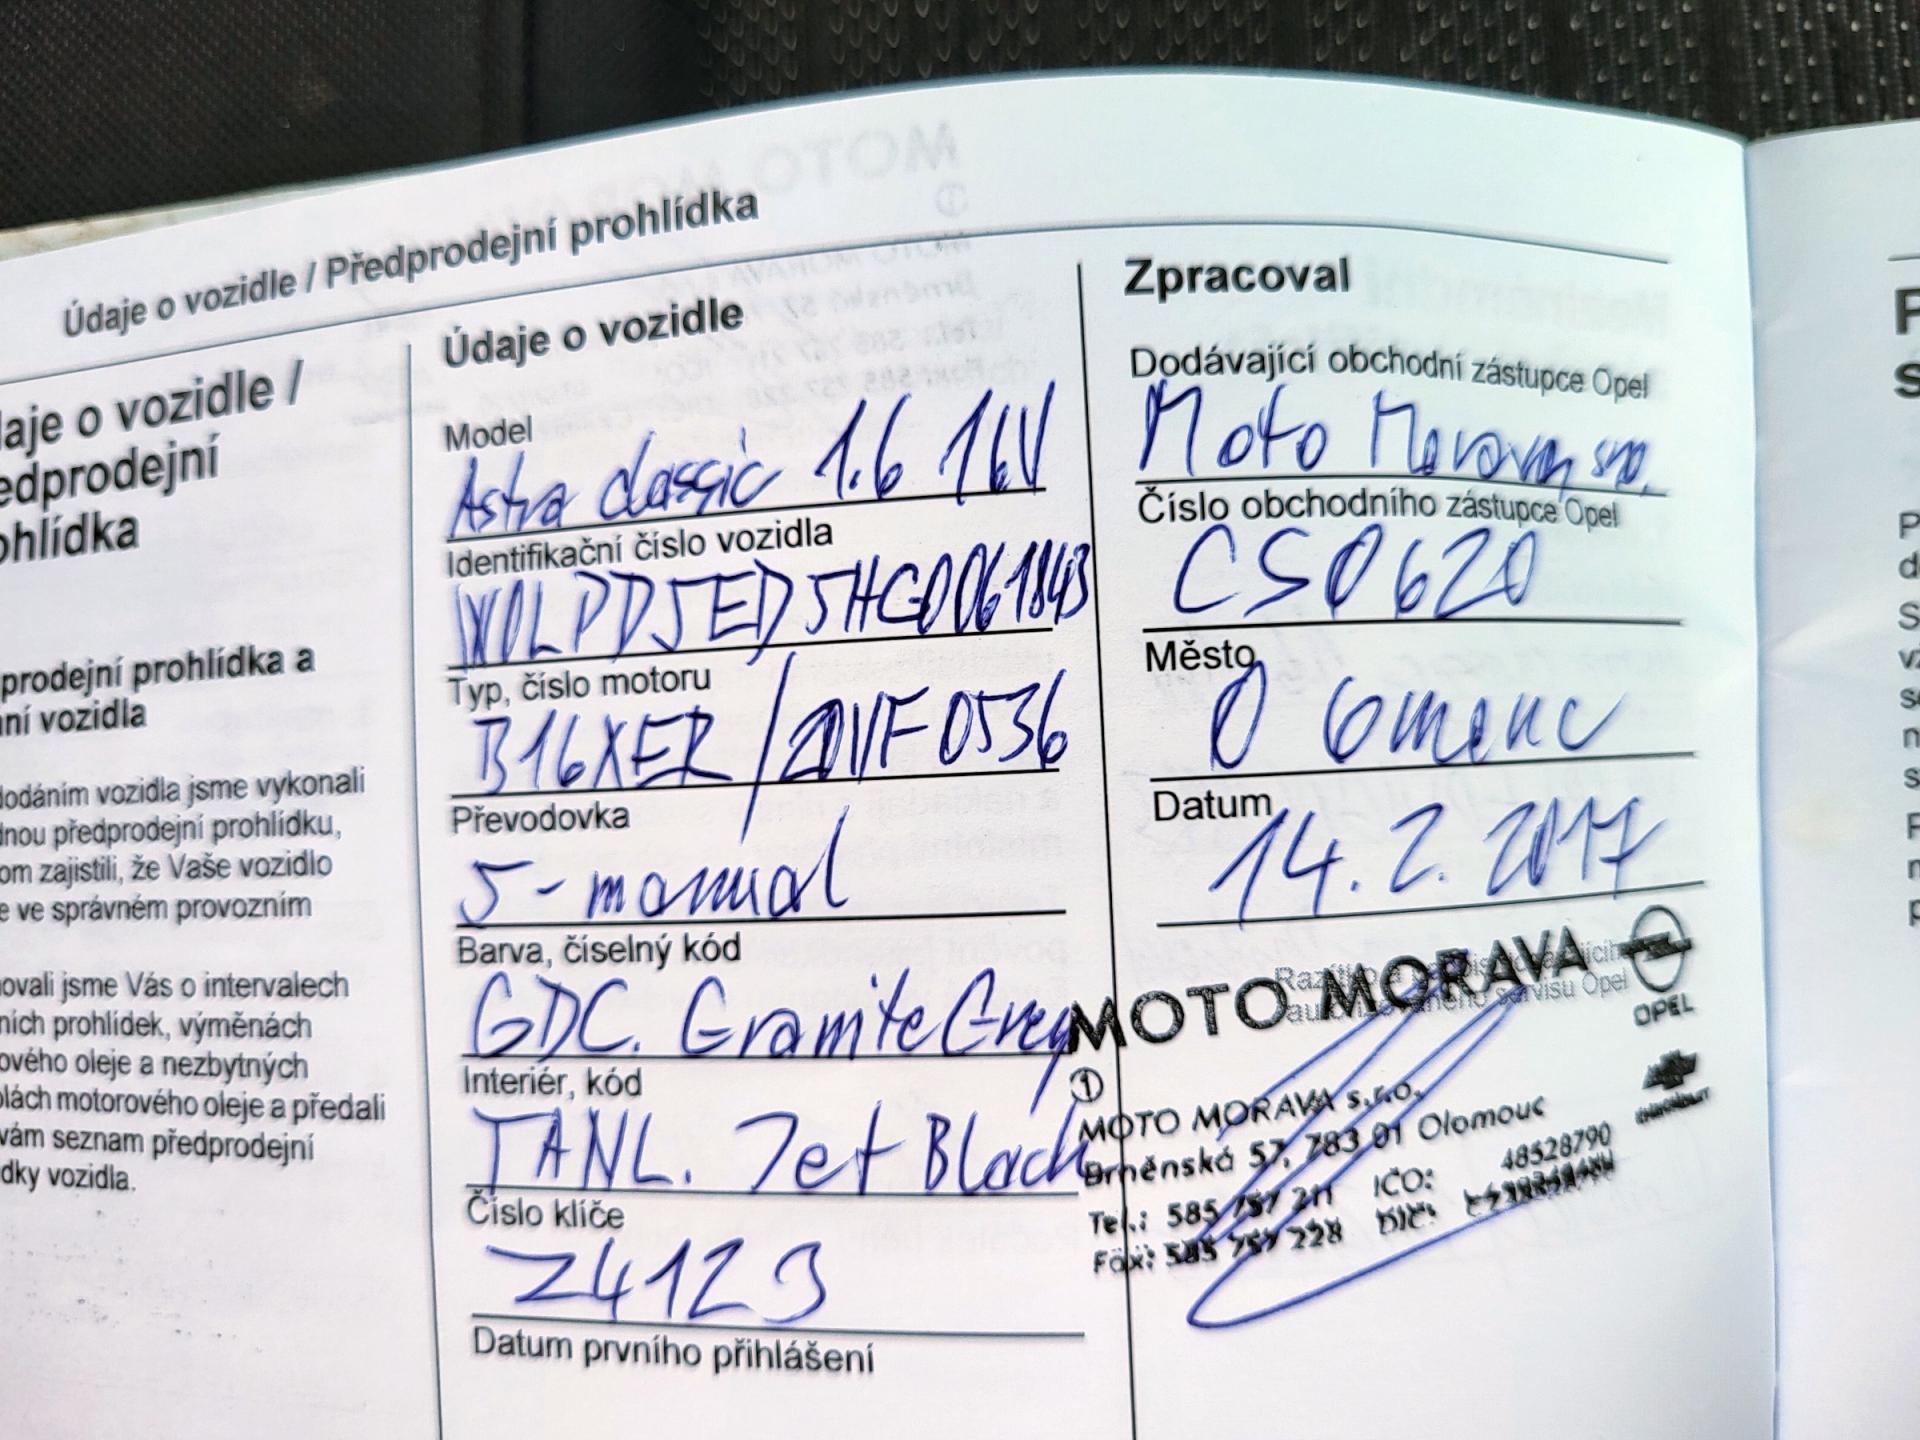 Údaje o vozidle / Předprodejní prohlídka
daje o vozidle /
edprodejní
ohlídka
prodejní prohlídka a
ní vozidla
dodáním vozidla jsme vykonali
dnou předprodejní prohlídku,
om zajistili, že Vaše vozidlo
e ve správném provozním
ovali jsme Vás o intervalech
ních prohlídek, výměnách
ového oleje a nezbytných
olách motorového oleje a předali
vám seznam předprodejní
dky vozidla.
Údaje o vozidle
Model
Astra classic 1.6 16V
Identifikační číslo vozidla
W0LPD5ED5HG061843
Typ, číslo motoru
B16XER / 20VF0536
Převodovka
5-manual
Barva, číselný kód
GDC. Granite Grey
Interiér, kód
TANL. Jet Black
Číslo klíče
Z4123
Datum prvního přihlášení
Zpracoval
Dodávající obchodní zástupce Opel
Moto Morava, sro.
Číslo obchodního zástupce Opel
CS0620
Město
Olomouc
Datum
14. 2. 2017
servisu Opel
MOTO MORAVA
OPEL
①
MOTO MORAVA s.r.o.
Brněnská 57, 783 01 Olomouc
Tel.: 585 757 211 IČO: 48528790
Fax: 585 757 228 DIČ: